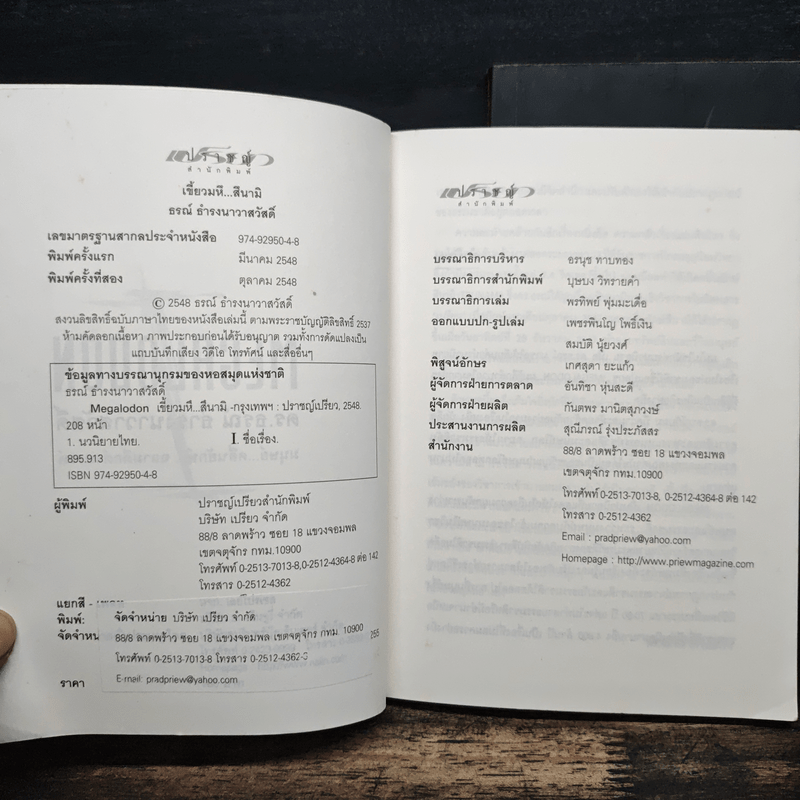 ปราชญ์
สำนักพิมพ์
เขี้ยวมหึ...สึนามิ
ธรณ์ ธำรงนาวาสวัสดิ์
เลขมาตรฐานสากลประจำหนังสือ 974-92950-4-8
พิมพ์ครั้งแรก มีนาคม 2548
พิมพ์ครั้งที่สอง ตุลาคม 2548
© 2548 ธรณ์ ธำรงนาวาสวัสดิ์
สงวนลิขสิทธิ์ฉบับภาษาไทยของหนังสือเล่มนี้ ตามพระราชบัญญัติลิขสิทธิ์ 2537
ห้ามคัดลอกเนื้อหา ภาพประกอบก่อนได้รับอนุญาต รวมทั้งการดัดแปลงเป็น
แถบบันทึกเสียง วิดีโอ โทรทัศน์ และสื่ออื่นๆ
ข้อมูลทางบรรณานุกรมของหอสมุดแห่งชาติ
ธรณ์ ธำรงนาวาสวัสดิ์
Megalodon เขี้ยวมหึ...สึนามิ -กรุงเทพฯ : ปราชญ์เปรียว, 2548.
208 หน้า
1. นวนิยายไทย. I. ชื่อเรื่อง.
895.913
ISBN 974-92950-4-8
ผู้พิมพ์ ปราชญ์เปรียวสำนักพิมพ์
บริษัท เปรียว จำกัด
88/8 ลาดพร้าว ซอย 18 แขวงจอมพล
เขตจตุจักร กทม.10900
โทรศัพท์ 0-2513-7013-8,0-2512-4364-8 ต่อ 142
โทรสาร 0-2512-4362
แยกสี -
พิมพ์:
จัดจำหน่าย บริษัท เปรียว จำกัด
88/8 ลาดพร้าว ซอย 18 แขวงจอมพล เขตจตุจักร กทม 10900
โทรศัพท์ 0-2513-7013-8 โทรสาร 0-2512-4362-3
ราคา
E-mail: pradpriew@yahoo.com
ปราชญ์
สำนักพิมพ์
บรรณาธิการบริหาร อรนุช ทาบทอง
บรรณาธิการสำนักพิมพ์ บุษบง วิทรายคำ
บรรณาธิการเล่ม พรทิพย์ พุ่มมะเดื่อ
ออกแบบปก-รูปเล่ม เพชรพินโญ โพธิ์เงิน
สมบัติ นุ้ยวงศ์
พิสูจน์อักษร เกศสุดา ยะแก้ว
ผู้จัดการฝ่ายการตลาด อันทิชา หุ่นสะดี
ผู้จัดการฝ่ายผลิต กันตพร มานิตสุภวงษ์
ประสานงานการผลิต สุณีภรณ์ รุ่งประภัสสร
สำนักงาน 88/8 ลาดพร้าว ซอย 18 แขวงจอมพล
เขตจตุจักร กทม.10900
โทรศัพท์ 0-2513-7013-8, 0-2512-4364-8 ต่อ 142
โทรสาร 0-2512-4362
Email : pradpriew@yahoo.com
Homepage : http://www.priewmagazine.com